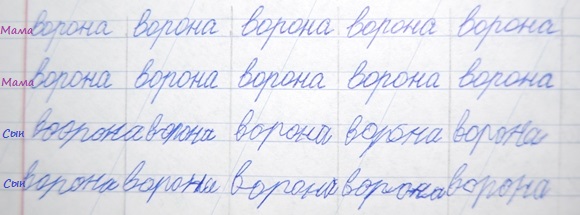 Мама ворона ворона ворона ворона ворона
Мама ворона ворона ворона ворона ворона
Сын воорона ворона ворона ворона ворона
Сын ворона ворона ворона ворона ворона